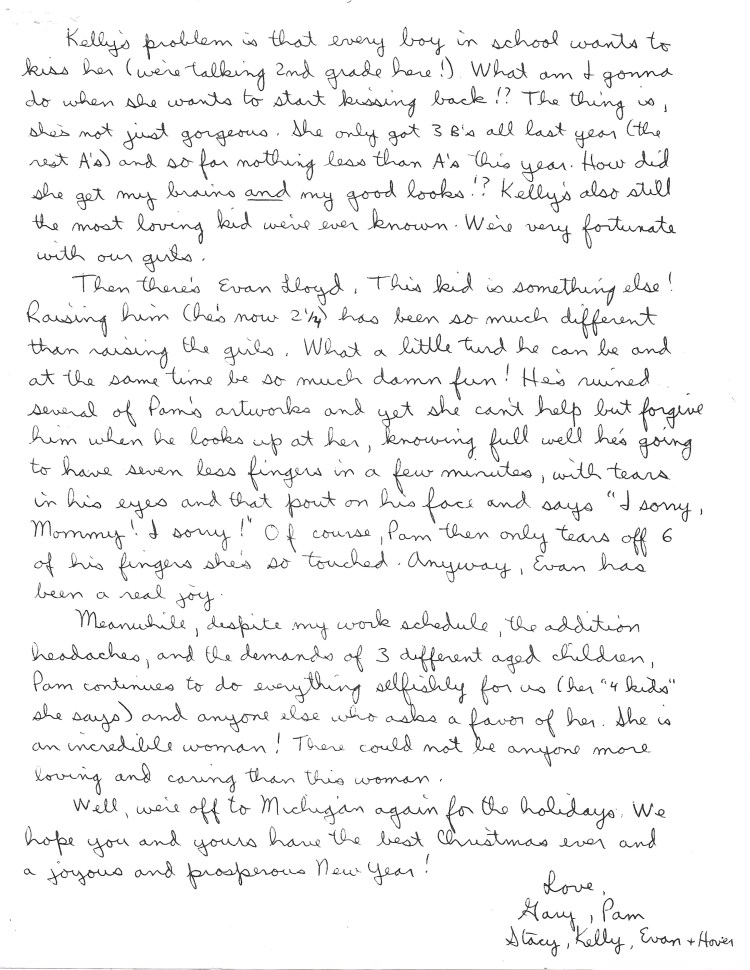 Kelly's problem is that every boy in school wants to
kiss her (we're talking 2nd grade here!). What am I gonna
do when she wants to start kissing back!? The thing is,
she's not just gorgeous. She only got 3 B's all last year (the
rest A's) and so far nothing less than A's this year. How did
she get my brains and my good looks!? Kelly's also still
the most loving kid we've ever known. We're very fortunate
with our girls.
Then there's Evan Lloyd. This kid is something else!
Raising him (he's now 2 1/4) has been so much different
than raising the girls. What a little turd he can be and
at the same time be so much damn fun! He's ruined
several of Pam's artworks and yet she can't help but forgive
him when he looks up at her, knowing full well he's going
to have seven less fingers in a few minutes, with tears
in his eyes and that pout on his face and says "I sorry,
Mommy! I sorry!" Of course, Pam then only tears off 6
of his fingers she's so touched. Anyway, Evan has
been a real joy.
Meanwhile, despite my work schedule, the addition
headaches, and the demands of 3 different aged children,
Pam continues to do everything selfishly for us (her "4 kids"
she says) and anyone else who asks a favor of her. She is
an incredible woman! There could not be anyone more
loving and caring than this woman.
Well, we're off to Michigan again for the holidays. We
hope you and yours have the best Christmas ever and
a joyous and prosperous New Year!
Love,
Gary, Pam
Stacy, Kelly, Evan +